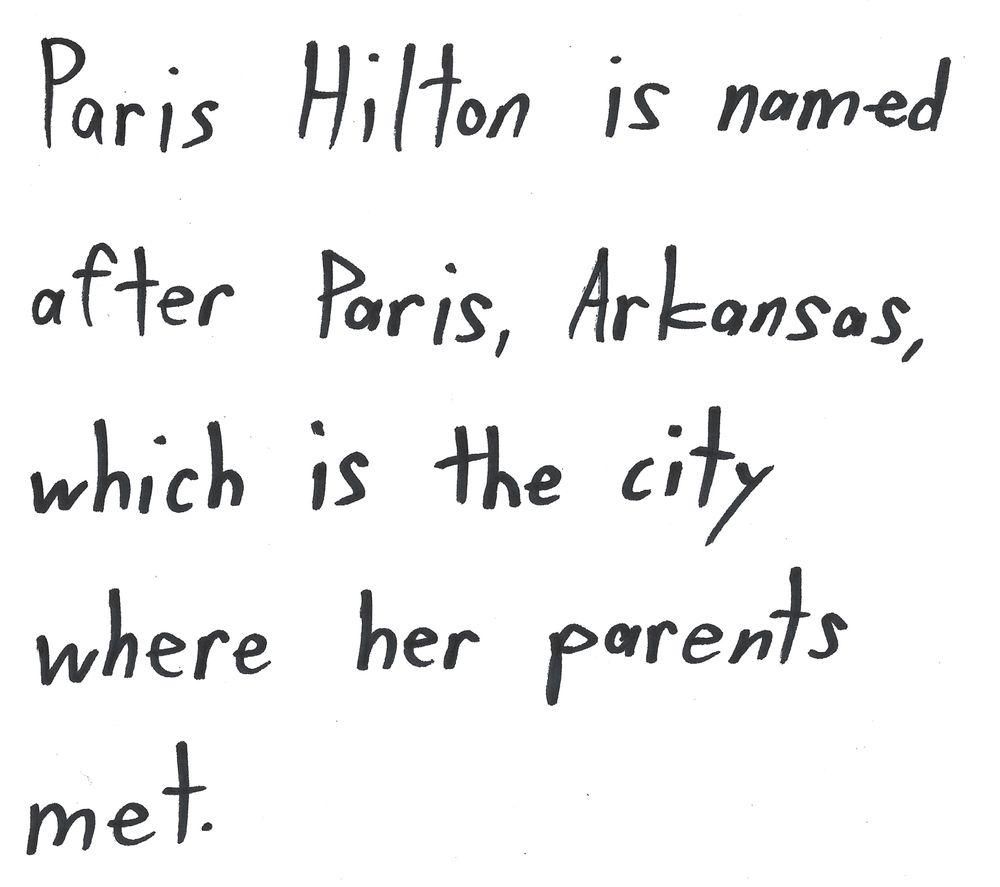 Paris Hilton is named
after Paris, Arkansas,
which is the city
where her parents
met.